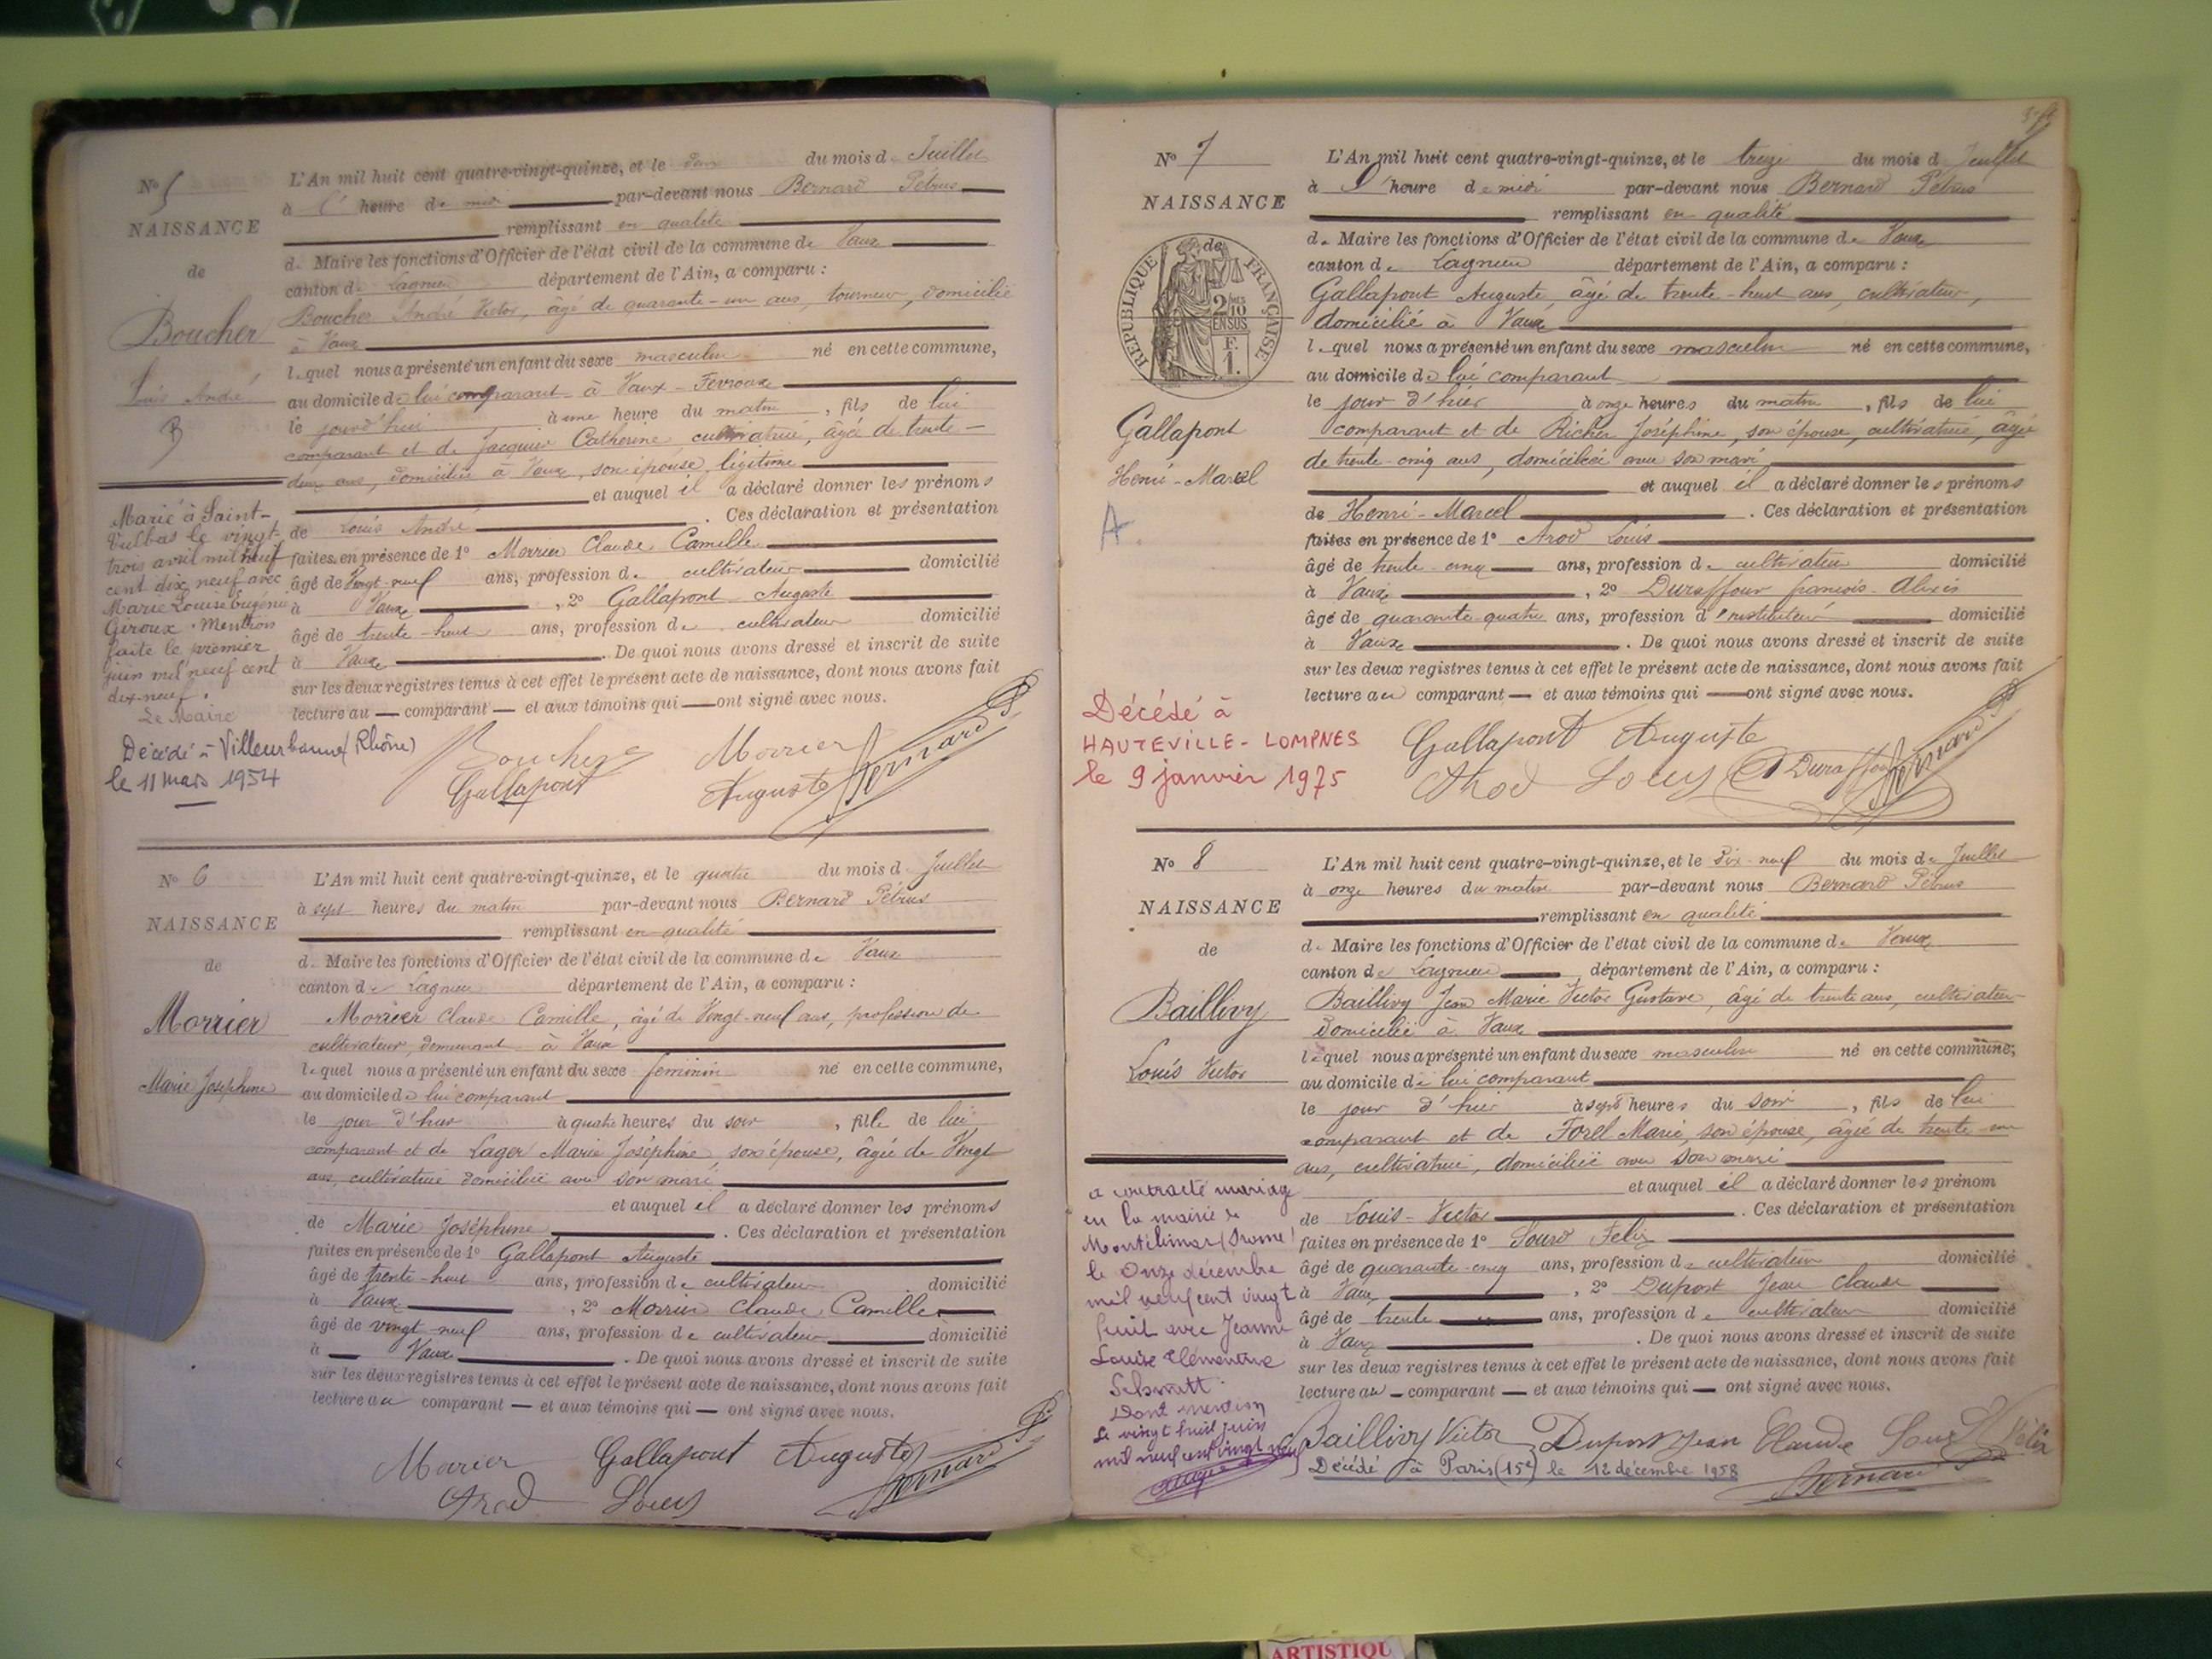 No 5
NAISSANCE
de
Boucher
Louis André
L'An mil huit cent quatre-vingt-quinze, et le deux du mois d. Juillet
à l' heure de midi par-devant nous Bernard Pétrus
remplissant en qualité
d. Maire les fonctions d'Officier de l'état civil de la commune de Vaux
canton de Lagnieu département de l'Ain, a comparu :
Boucher André Victor, âgé de quarante-un ans, tourneur, domicilié
à Vaux
lequel nous a présenté un enfant du sexe masculin né en cette commune,
au domicile de lui comparant à Vaux-Fevroux
le jourd'hui à une heure du matin, fils de lui
comparant et de Jacquier Catherine cultivatrice, âgée de trente-
deux ans, domiciliée à Vaux, son épouse légitime
et auquel il a déclaré donner les prénoms
de Louis André . Ces déclaration et présentation
faites en présence de 1º Morrier Claude Camille
âgé de Vingt-neuf ans, profession de cultivateur domicilié
à Vaux , 2º Gallapont Auguste
âgé de trente-huit ans, profession de cultivateur domicilié
à Vaux . De quoi nous avons dressé et inscrit de suite
sur les deux registres tenus à cet effet le présent acte de naissance, dont nous avons fait
lecture au comparant et aux témoins qui ont signé avec nous.
Marié à Saint-
Vulbas le vingt-
trois avril mil neuf
cent dix neuf avec
Marie Louise Eugénie
Giroux. Mention
faite le premier
juin mil neuf cent
dix-neuf.
Le Maire
Décédé à Villeurbanne (Rhône)
le 11 mars 1954
Boucher Morrier
Gallapont Auguste Bernard P
No 6
NAISSANCE
de
Morrier
Marie Joséphine
L'An mil huit cent quatre-vingt-quinze, et le quatre du mois d. Juillet
à sept heures du matin par-devant nous Bernard Pétrus
remplissant en qualité
d. Maire les fonctions d'Officier de l'état civil de la commune de Vaux
canton de Lagnieu département de l'Ain, a comparu :
Morrier Claude Camille, âgé de Vingt-neuf ans, profession de
cultivateur, demeurant à Vaux
lequel nous a présenté un enfant du sexe féminin né en cette commune,
au domicile de lui comparant
le jour d'hier à quatre heures du soir , fille de lui
comparant et de Lager Marie Joséphine son épouse, âgée de Vingt
ans, cultivatrice domiciliée avec son mari
et auquel il a déclaré donner les prénoms
de Marie Joséphine . Ces déclaration et présentation
faites en présence de 1º Gallapont Auguste
âgé de trente-huit ans, profession de cultivateur domicilié
à Vaux , 2º Morrier Claude Camille
âgé de vingt-neuf ans, profession de cultivateur domicilié
à Vaux . De quoi nous avons dressé et inscrit de suite
sur les deux registres tenus à cet effet le présent acte de naissance, dont nous avons fait
lecture au comparant et aux témoins qui ont signé avec nous.
Morrier Gallapont Auguste
Arod Louis Bernard P
No 7
NAISSANCE
de
RÉPUBLIQUE FRANÇAISE
2/10 EN SUS
F. 1.
Gallapont
Henri-Marcel
A.
L'An mil huit cent quatre-vingt-quinze, et le treize du mois d Juillet
à l'heure de midi par-devant nous Bernard Pétrus
remplissant en qualité
d. Maire les fonctions d'Officier de l'état civil de la commune de Vaux
canton de Lagnieu département de l'Ain, a comparu :
Gallapont Auguste, âgé de trente-huit ans, cultivateur,
domicilié à Vaux
lequel nous a présenté un enfant du sexe masculin né en cette commune,
au domicile de lui comparant
le jour d'hier à onze heures du matin , fils de lui
comparant et de Richer Joséphine, son épouse, cultivatrice, âgée
de trente-cinq ans, domiciliée avec son mari
et auquel il a déclaré donner les prénoms
de Henri-Marcel . Ces déclaration et présentation
faites en présence de 1º Arod Louis
âgé de trente-cinq ans, profession de cultivateur domicilié
à Vaux , 2º Duraffour françois-Alexis
âgé de quarante-quatre ans, profession d'instituteur domicilié
à Vaux . De quoi nous avons dressé et inscrit de suite
sur les deux registres tenus à cet effet le présent acte de naissance, dont nous avons fait
lecture au comparant et aux témoins qui ont signé avec nous.
Décédé à
HAUTEVILLE-LOMPNES
le 9 janvier 1975
Gallapont Auguste
Arod Louis Duraffour Bernard P
No 8
NAISSANCE
de
Baillivy
Louis Victor
L'An mil huit cent quatre-vingt-quinze, et le dix-neuf du mois de Juillet
à onze heures du matin par-devant nous Bernard Pétrus
remplissant en qualité
d. Maire les fonctions d'Officier de l'état civil de la commune de Vaux
canton de Lagnieu département de l'Ain, a comparu :
Baillivy Jean Marie Victor Gustave, âgé de trente ans, cultivateur
domicilié à Vaux
lequel nous a présenté un enfant du sexe masculin né en cette commune,
au domicile de lui comparant
le jour d'hier à sept heures du soir , fils de lui
comparant et de Forel Marie, son épouse, âgée de trente-un
ans, cultivatrice, domiciliée avec son mari
et auquel il a déclaré donner les prénom
de Louis-Victor . Ces déclaration et présentation
faites en présence de 1º Sourd Félix
âgé de quarante-cinq ans, profession de cultivateur domicilié
à Vaux , 2º Dupont Jean Claude
âgé de trente ans, profession de cultivateur domicilié
à Vaux . De quoi nous avons dressé et inscrit de suite
sur les deux registres tenus à cet effet le présent acte de naissance, dont nous avons fait
lecture au comparant et aux témoins qui ont signé avec nous.
a contracté mariage
en la mairie de
Montélimar (Drôme)
le onze décembre
mil neuf cent vingt
huit avec Jeanne
Louise Clémentine
Schmitt.
Dont mention
le vingt huit juin
mil neuf cent vingt neuf
Baillivy Victor Dupont Jean Claude Sourd Félix
Décédé à Paris (15e) le 12 décembre 1958
Bernard
ARTISTIQU